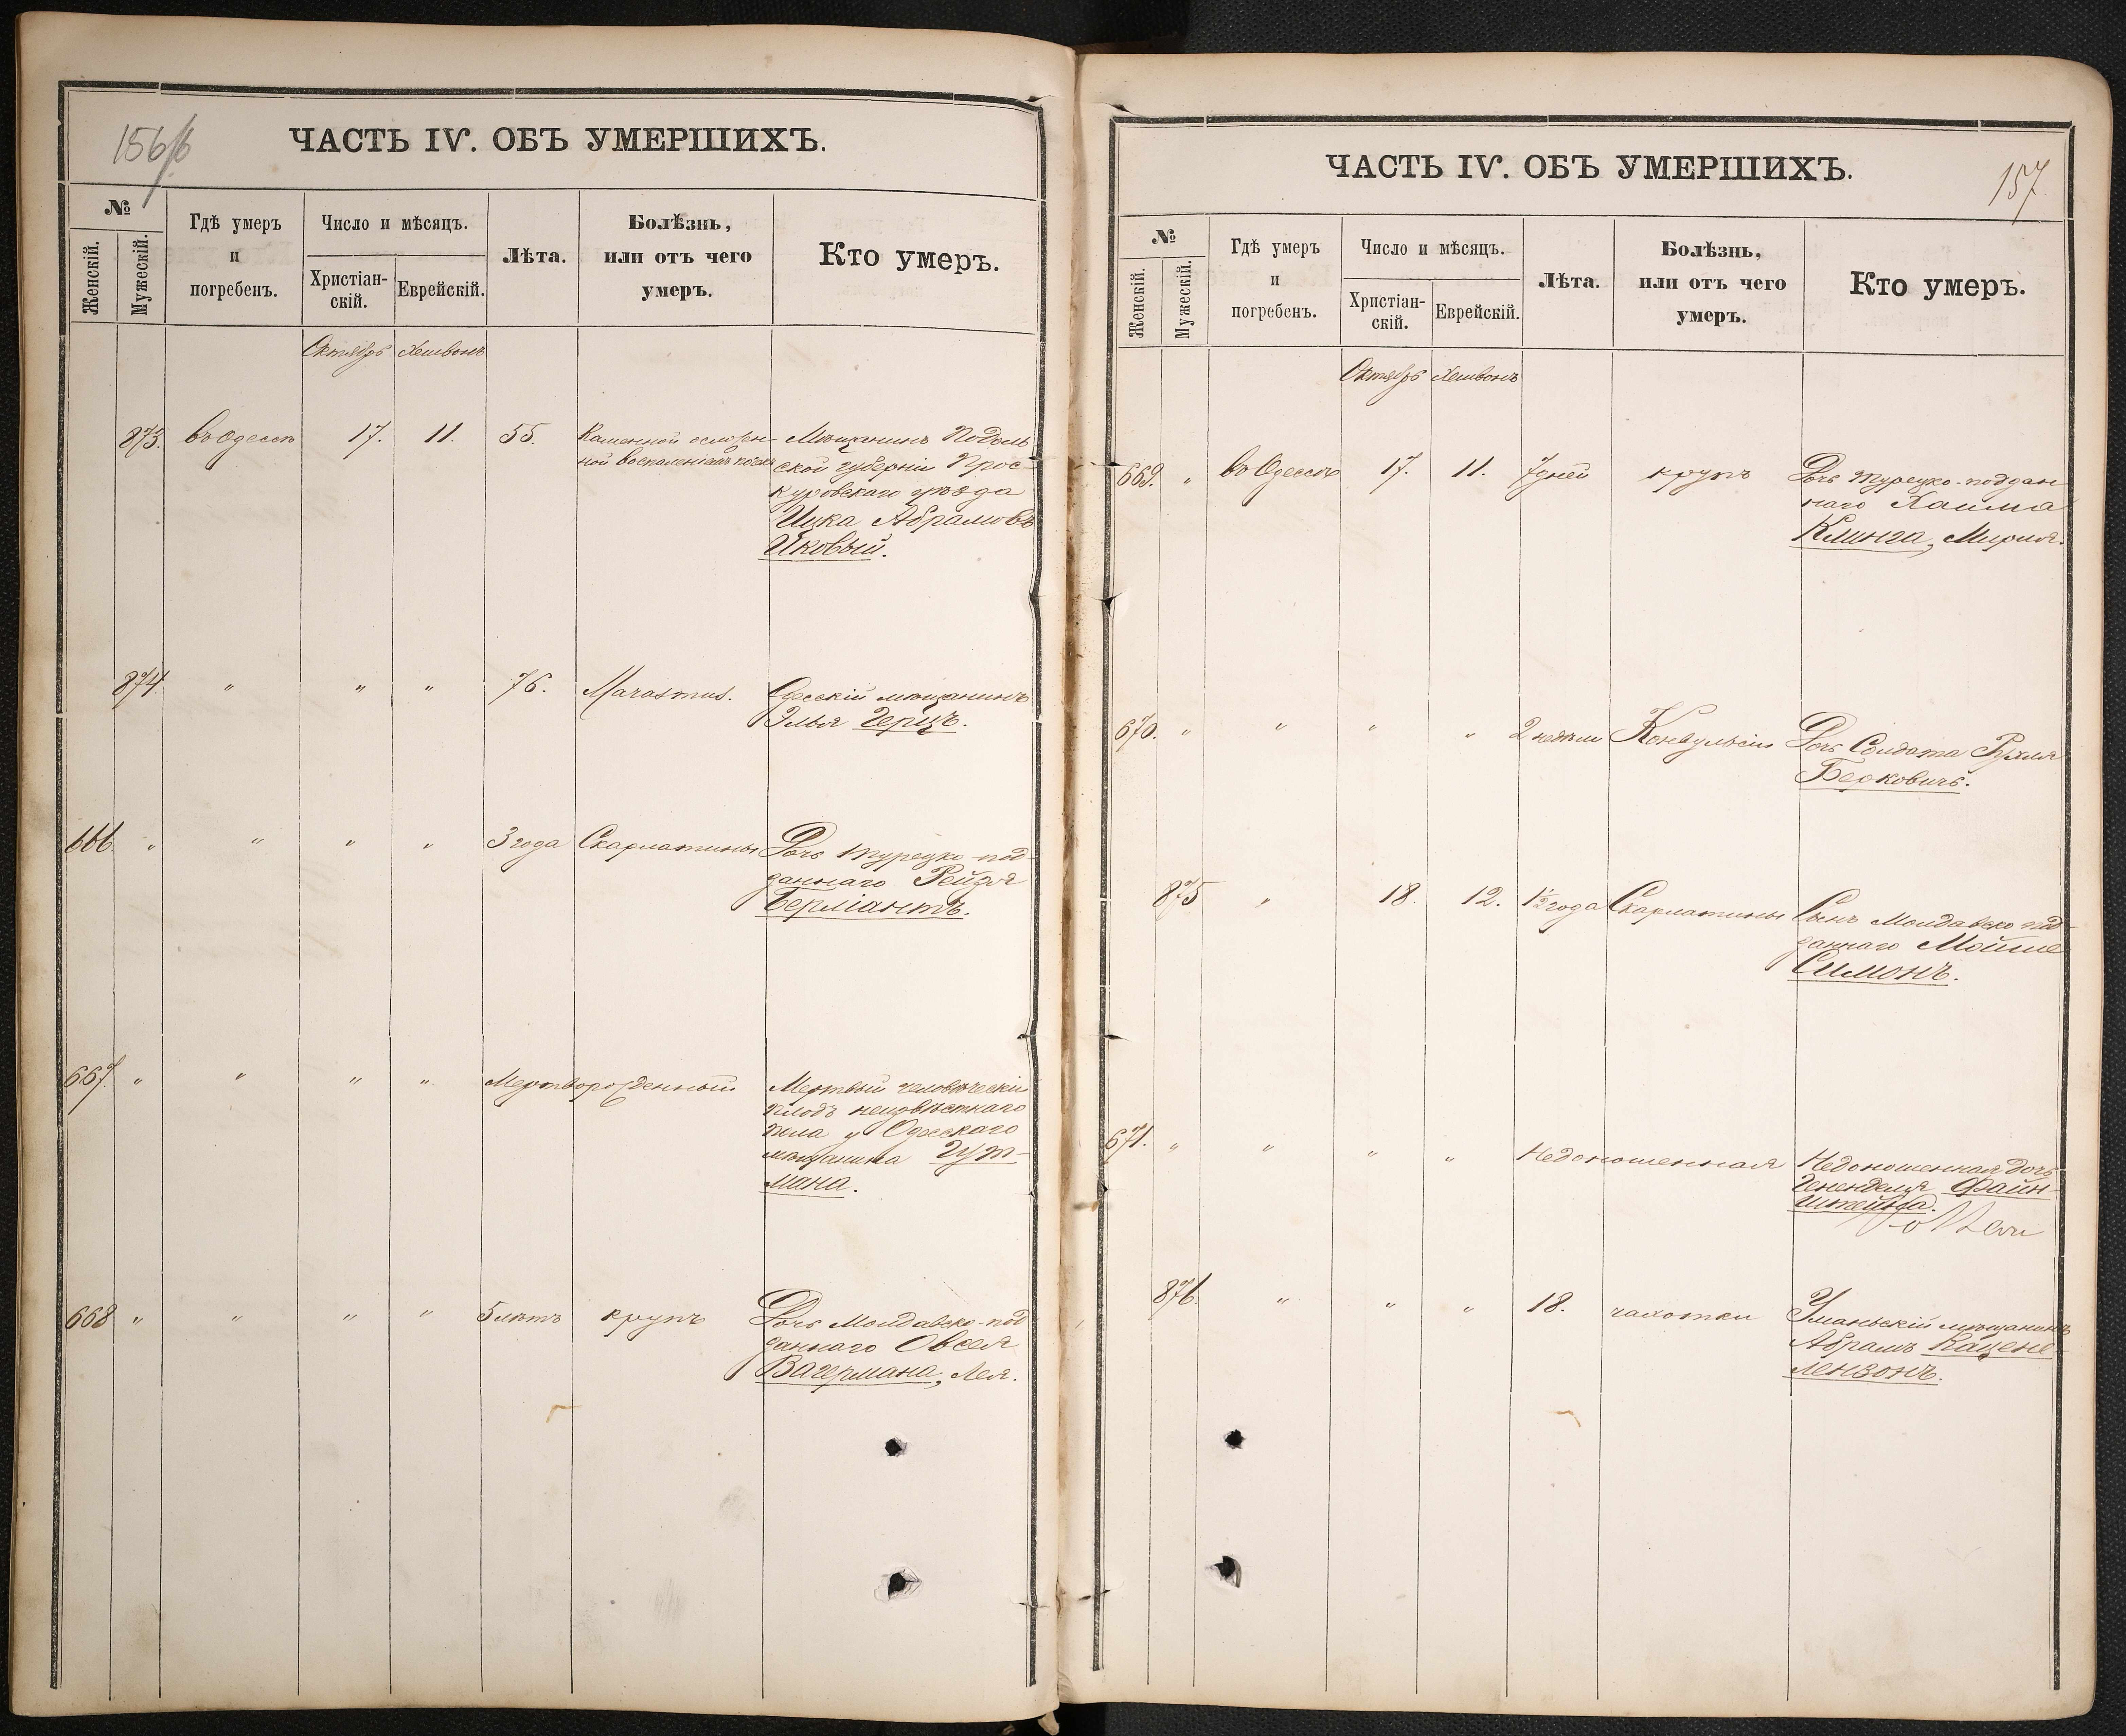 156/б
ЧАСТЬ IV. ОБЪ УМЕРШИХЪ.
№
Женскій.
Мужескій.
Гдѣ умеръ
и
погребенъ.
Число и мѣсяцъ.
Христіан-
скій.
Еврейскій.
Лѣта.
Болѣзнь,
или отъ чего
умеръ.
Кто умеръ.
Октябрь Хешвонъ
873. въ Одессѣ 17. 11. 55. Каменной осложн- Мѣщанинъ Подоль
ной воспаленіемъ почекъ ской губерніи Прос-
куровскаго уѣзда
Ицка Абрамовъ
Яковый.
874. " " " 76. Marasmus. Одесскій мѣщанинъ
Элья Герцъ.
666. " " " " 3 года Скарлатины Дочь турецко-под-
даннаго Рейзя
Берліантъ.
667. " " " " Мертворожденный Мертвый человѣческій
плодъ неизвѣстнаго
пола у Одесскаго
мѣщанина Гут-
мана.
668 " " " " 5 лѣтъ крупъ Дочь Молдавско-под
даннаго Овсея
Вагермана, Лея.
ЧАСТЬ IV. ОБЪ УМЕРШИХЪ.
157
№
Женскій.
Мужескій.
Гдѣ умеръ
и
погребенъ.
Число и мѣсяцъ.
Христіан-
скій.
Еврейскій.
Лѣта.
Болѣзнь,
или отъ чего
умеръ.
Кто умеръ.
Октябрь Хешвонъ
669. " въ Одессѣ 17. 11. 7 дней крупъ Дочь Турецко-поддан
наго Хаима
Клинга, Мирия.
670. " " " " 2 недѣли Конвульсіи Дочь Солдата Рухля
Берковичъ.
875 " 18. 12. 1½ года Скарлатины Сынъ Молдавско под-
даннаго Мойше
Симонъ.
671. " " " " Недоношенная Недоношенная дочь
Гененделя Файн-
штейна.
876. " " " 18. чахотки Уманьскій мѣщанинъ
Абрамъ Кацене-
лензонъ.